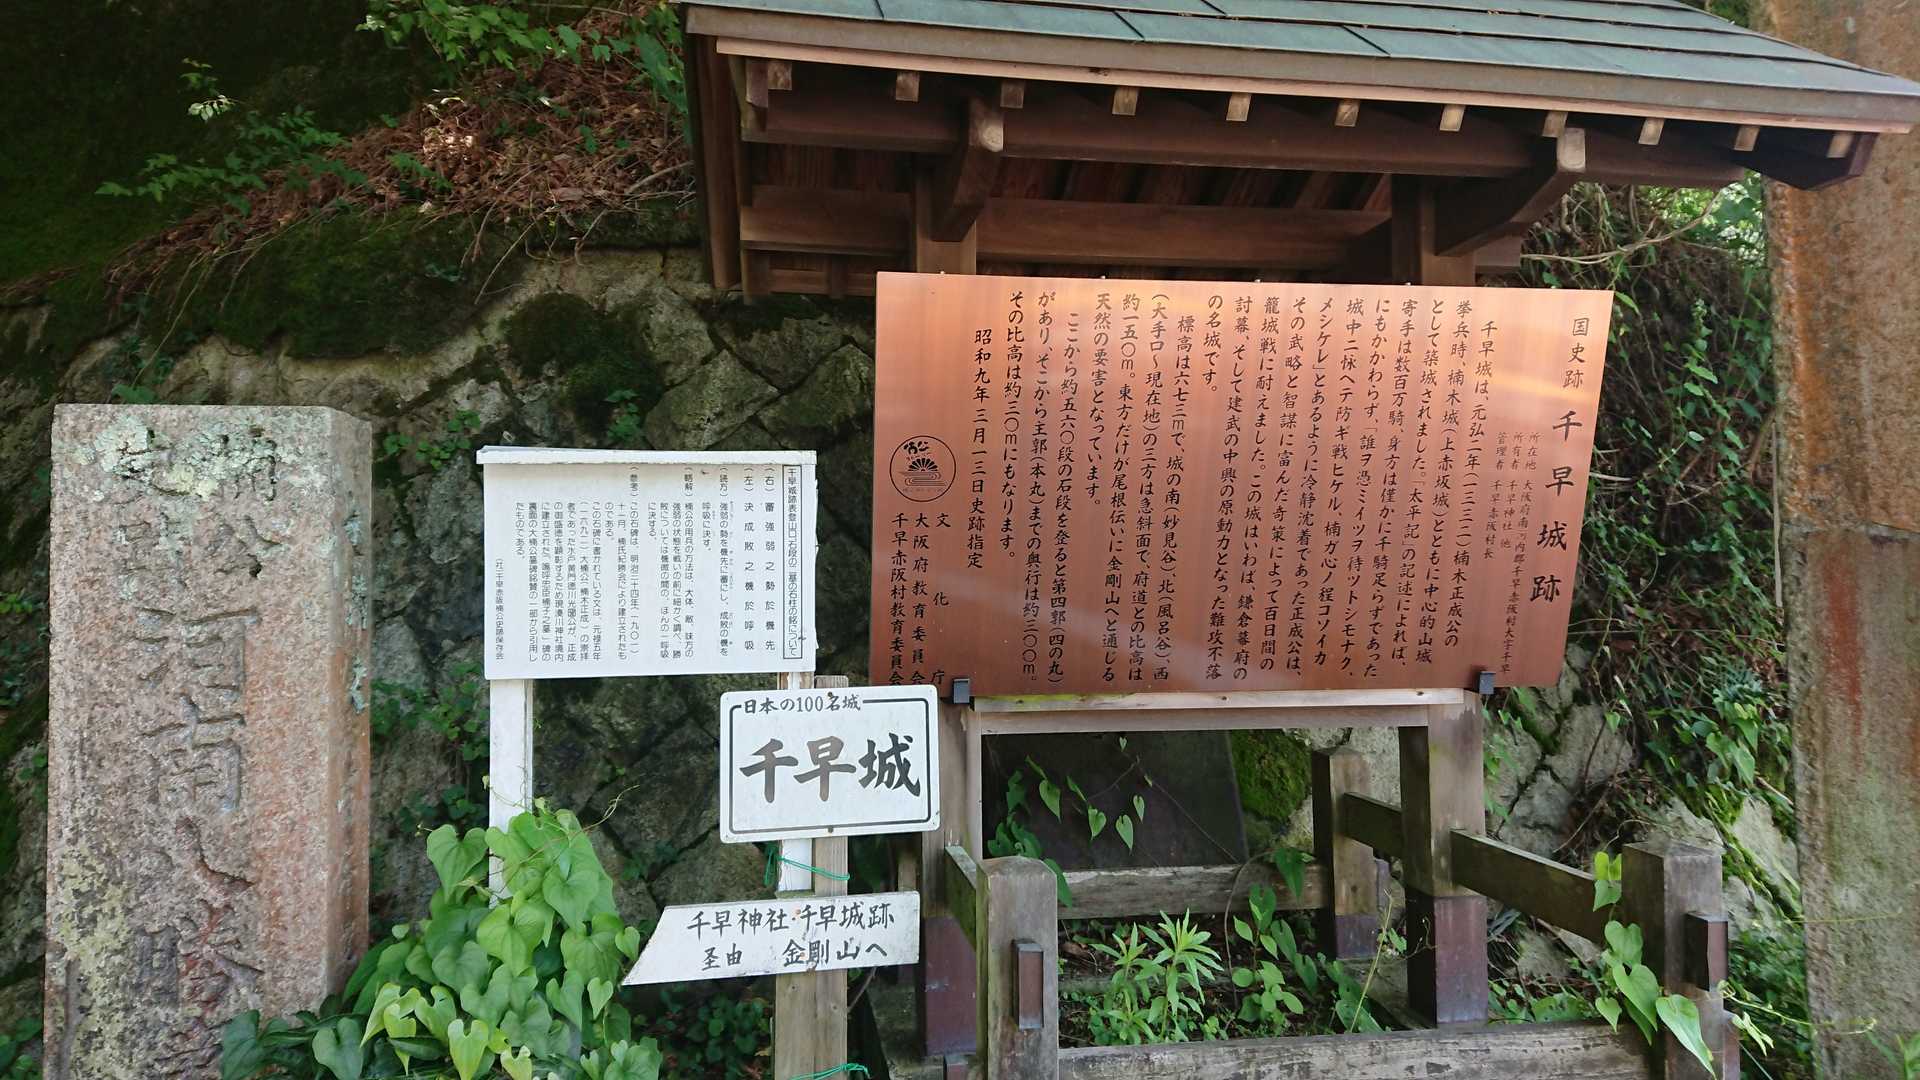 国史跡 千早城跡
所在地 大阪府南河内郡千早赤阪村大字千早
所有者 千早神社 他
管理者 千早赤阪村長
千早城は、元弘二年(一三三二)楠木正成公の
挙兵時、楠木城(上赤坂城)とともに中心的山城
として築城されました。「太平記」の記述によれば、
寄手は数百万騎、身方は僅かに千騎足らずであった
にもかかわらず、「誰ヲ憑ミイツヲ待ツトシモナク、
城中ニ怺ヘテ防ギ戦ヒケル、楠ガ心ノ程コソイカ
メシケレ」とあるように冷静沈着であった正成公は、
その武略と智謀に富んだ奇策によって百日間の
籠城戦に耐えました。この城はいわば、鎌倉幕府の
討幕、そして建武の中興の原動力となった難攻不落
の名城です。
標高は六七三mで、城の南(妙見谷)、北(風呂谷)、西
(大手口～現在地)の三方は急斜面で、府道との比高は
約一五〇m。東方だけが尾根伝いに金剛山へと通じる
天然の要害となっています。
ここから約五六〇段の石段を登ると第四郭(四の丸)
があり、そこから主郭(本丸)までの奥行は約三〇〇m。
その比高は約三〇mにもなります。
昭和九年三月一三日史跡指定
文化庁
大阪府教育委員会
千早赤阪村教育委員会
千早城跡表登山口石段の二基の石柱の銘について
(右) 蓄強弱之勢於機先
(左) 決成敗之機於呼吸
(読方) 強弱の勢を機先に蓄にし、成敗の機を
呼吸に決す。
(略解) 楠公の用兵の方法は、大体、敵、味方の
強弱の状態を戦いの前に細かく調べ、勝
敗については機微の間の、ほんの一呼吸
に決する。
(参考) この石碑は、明治三十四年(一九〇一)
十一月、楠氏紀勝会により建立されたも
のである。
この石碑に書かれている文は、元禄五年
(一六九二)大楠公(楠木正成)の崇拝
者であった水戸黄門徳川光圀公が、正成
の御盛徳を顕彰するため現湊川神社境内
に建立された「嗚呼忠臣楠子之墓」碑の
裏面の大楠公墓碑銘賛の一部から引用し
たものである。
(社)千早赤阪楠公史跡保存会
日本の100名城
千早城
千早神社・千早城跡
圣由 金剛山へ
河南